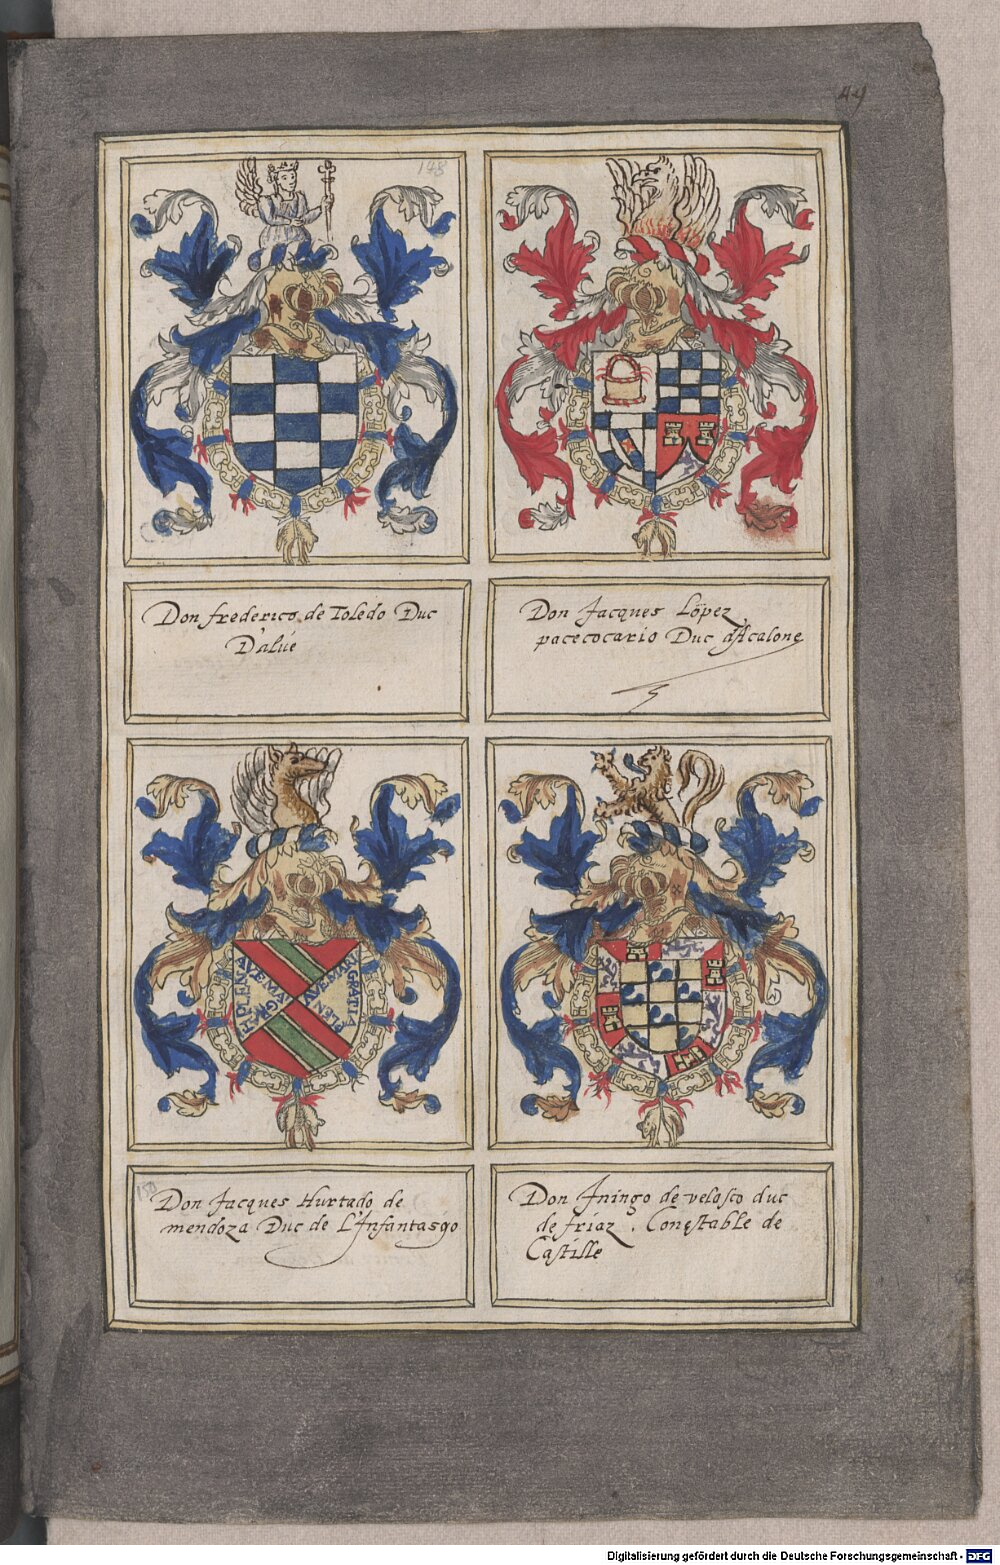 49
148
Don frederico de Toledo Duc
D'alúe
Don Jacques López
pacecocario Duc d'Acalone
AVE MA
GRATI
PLEN
AVE MARIA
GRATI
PLEN
150
Don Jacques Hurtado de
mendoza Duc de L'Infantasgo
Don Jningo de velasco duc
de friaz . Conestable de
Castille
Digitalisierung gefördert durch die Deutsche Forschungsgemeinschaft - DFG